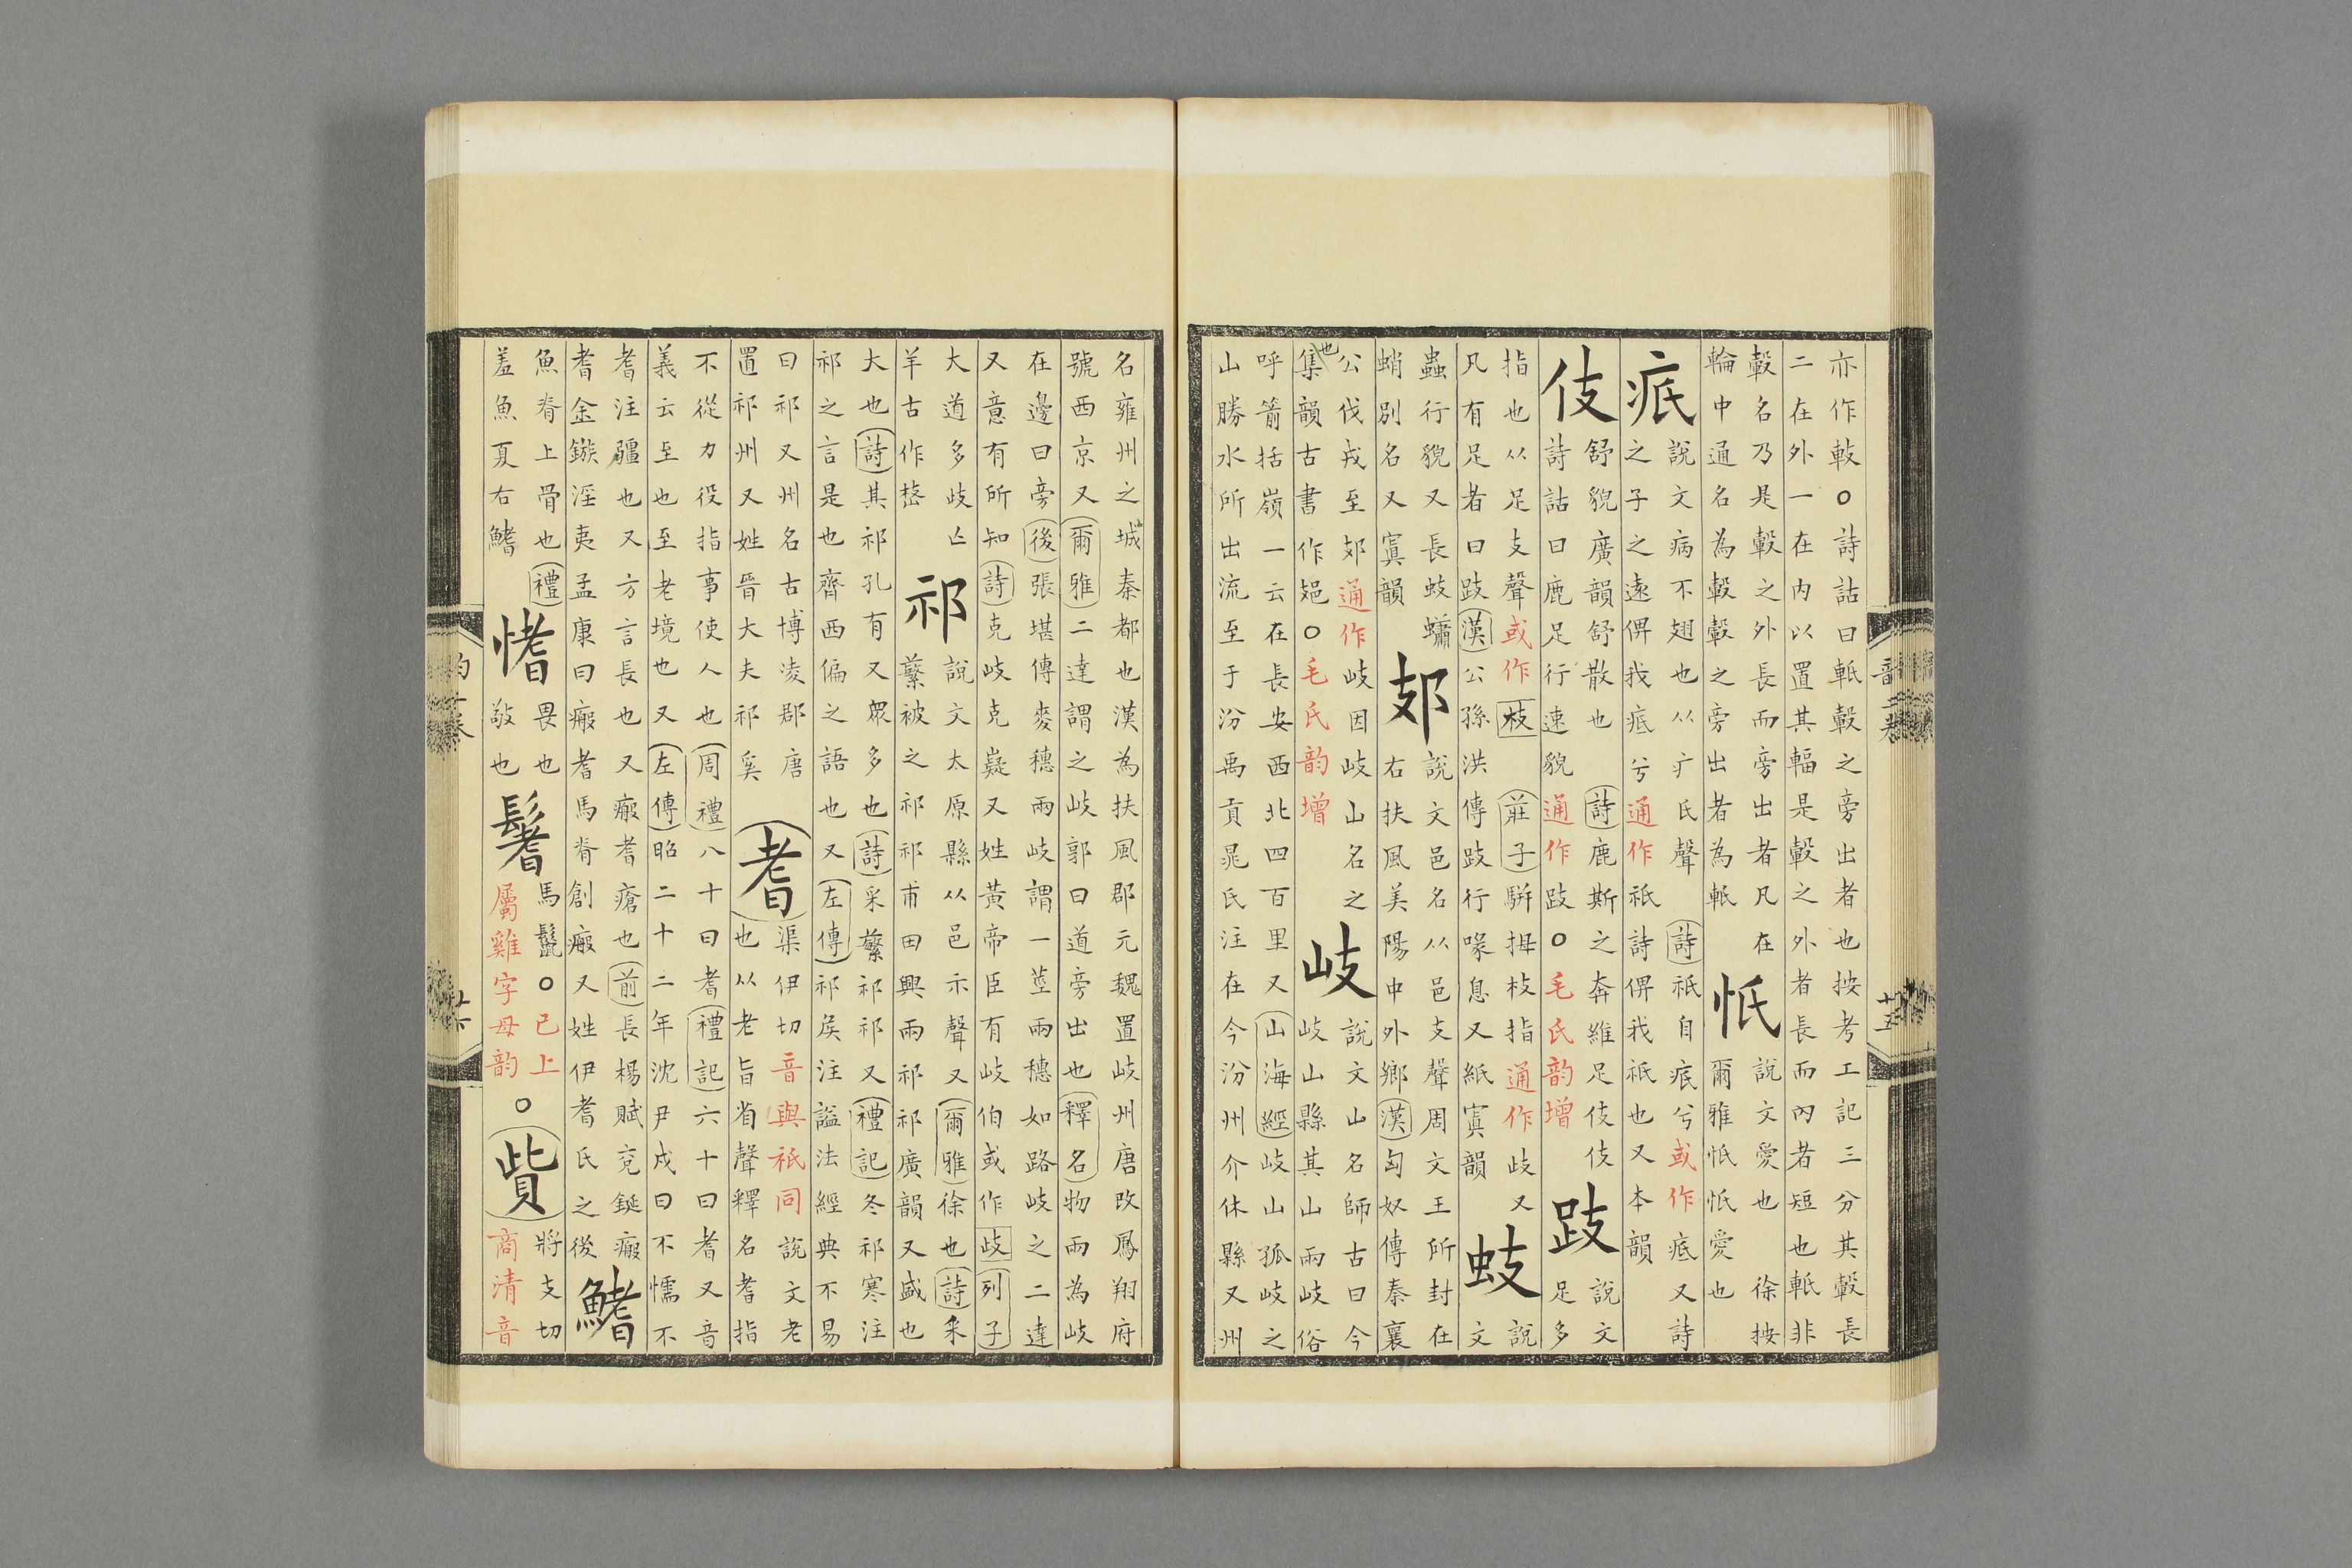 亦作𨋢○詩詁曰軝轂之旁出者也按考工記三分其轂長
二在外一在内以置其輻是轂之外者長而內者短也軝非
轂名乃是轂之外長而旁出者凡在
輪中通名為轂轂之旁出者為軝
忯
說文愛也徐按
爾雅忯忯愛也
疧
說文病不翅也从疒氏聲詩祇自疧兮或作疷又詩
之子之遠俾我疷兮通作祇詩俾我祇也又本韻
伎
舒貌廣韻舒散也詩鹿斯之奔維足伎伎
詩詁曰鹿足行速貌通作跂○毛氏韵增
跂
說文足多
指也从足支聲或作枝莊子駢拇枝指通作歧又
凡有足者曰跂漢公孫洪傳跂行喙息又紙寘韻
蚑
說文
蟲行貌又長蚑蠨
蛸別名又寘韻
郂
說文邑名从邑支聲周文王所封在
右扶風美陽中外鄉漢匈奴傳秦襄
公伐戎至郊通作岐因岐山名之也
集韻古書作㟚○毛氏韵增
岐
說文山名師古曰今
岐山縣其山兩岐俗
呼箭括嶺一云在長安西北四百里又山海經岐山孤岐之
山勝水所出流至于汾禹貢晁氏注在今汾州介休縣又州
韻二卷
十五
名雍州之城秦都也漢為扶風郡元魏置岐州唐改鳳翔府
號西京又爾雅二達謂之岐郭曰道旁出也釋名物兩為岐
在邊曰旁後張堪傳麥穗兩岐謂一莖兩穗如路岐之二達
又意有所知詩克岐克嶷又姓黃帝臣有岐伯或作歧列子
大道多歧亡
羊古作𡺸
祁
說文太原縣从邑示聲又爾雅徐也詩采
蘩被之祁祁甫田興雨祁祁廣韻又盛也
大也詩其祁孔有又眾多也詩采蘩祁祁又禮記冬祁寒注
祁之言是也齊西偏之語也又左傳祁侯注謚法經典不易
曰祁又州名古博淩郡唐
置祁州又姓晉大夫祁奚
耆
渠伊切音與祇同說文老
也从老旨省聲釋名耆指
不從力役指事使人也周禮八十曰耆禮記六十曰耆又音
義云至也至老境也又左傳昭二十二年沈尹戍曰不懦不
耆注疆也又方言長也又瘢耆瘡也前長楊賦兖鋋瘢
耆金鏃淫夷孟康曰瘢耆馬脊創瘢又姓伊耆氏之後
鰭
魚脊上骨也禮
羞魚夏右鰭
愭
畏也
敬也
鬐
馬鬣○已上
屬雞字母韵
○
貲
將支切
商清音
廿六